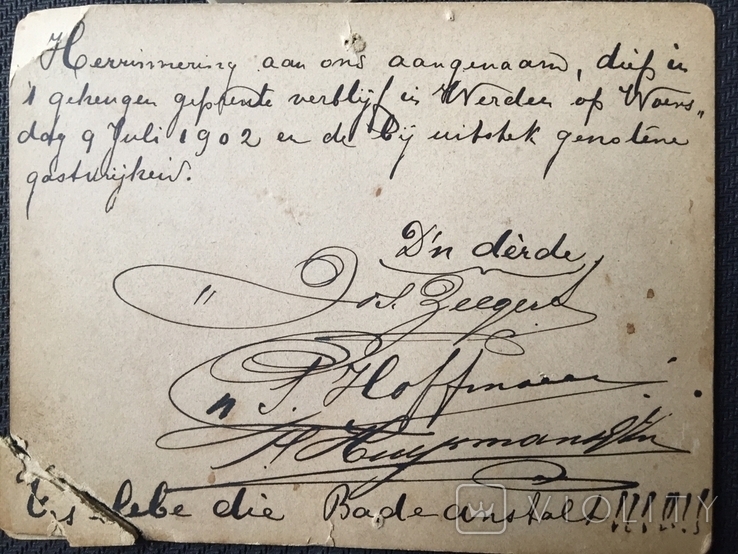 Herrinnering aan ons aangenaam, diep in
't geheugen geprente verblijf in Werden op Woens„
dag 9 Juli 1902 en de bij uitstek genotene
gastvrijheid.
D'n dèrde
" Jos. Zeegers
" P. Hoffmann
Es lebe die Badeanstalt!!!!!!
VIOLITY